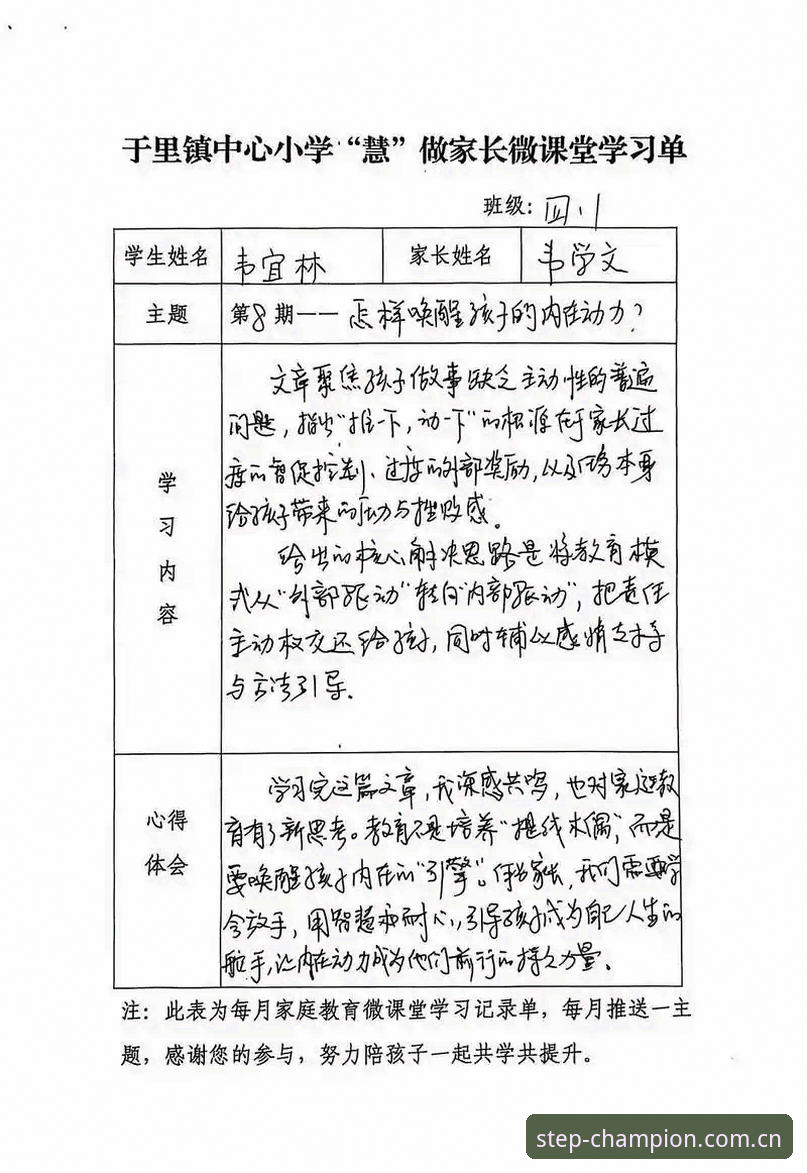 于里镇中心小学“慧”做家长微课堂学习单
班级：四.1
学生姓名 韦宜林 家长姓名 韦学文
主题 第8期——怎样唤醒孩子的内在动力？
学习内容
文章聚焦孩子做事缺乏主动性的普遍
问题，指出“推一下，动一下”的根源在于家长过
度的督促控制、过度的外部奖励，以及任务本身
给孩子带来的压力与挫败感。
给出的核心解决思路是将教育模
式从“外部驱动”转向“内部驱动”，把责任
主动权交还给孩子，同时辅以感情支持
与方法引导.
心得体会
学习完这篇文章，我深感共鸣，也对家庭教
育有了新思考。教育不是培养“提线木偶”，而是
要唤醒孩子内在的“引擎”。作为家长，我们需要学
会放手，用智慧和耐心，引导孩子成为自己人生的
舵手，让内在动力成为他们前行的持久力量。
注：此表为每月家庭教育微课堂学习记录单，每月推送一主
题，感谢您的参与，努力陪孩子一起共学共提升。
step-champion.com.cn